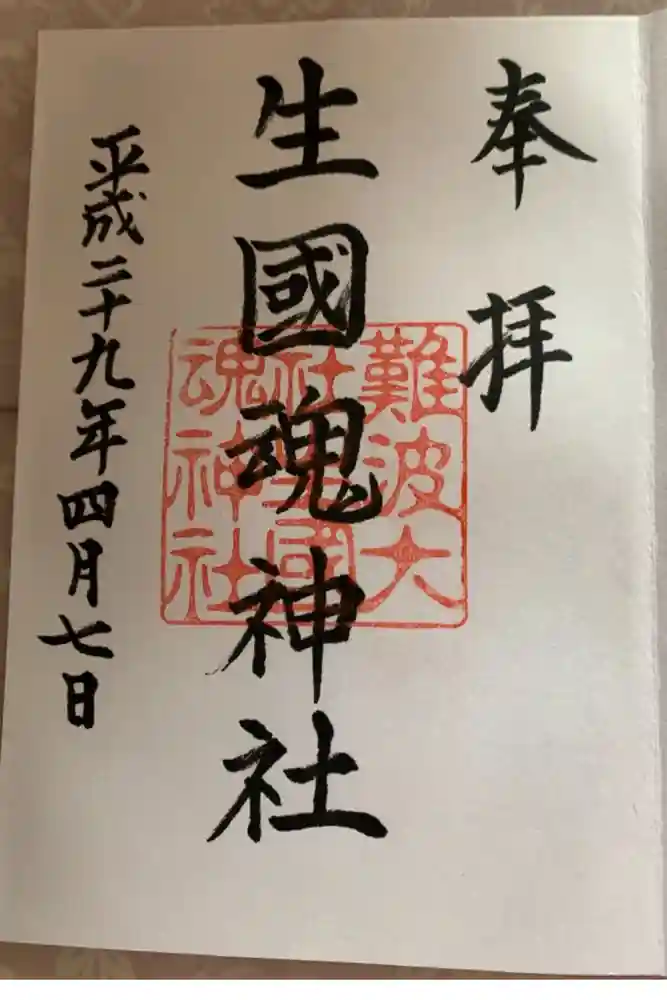 奉拝
生國魂神社
平成二十九年四月七日
難波大
社生國
魂神社